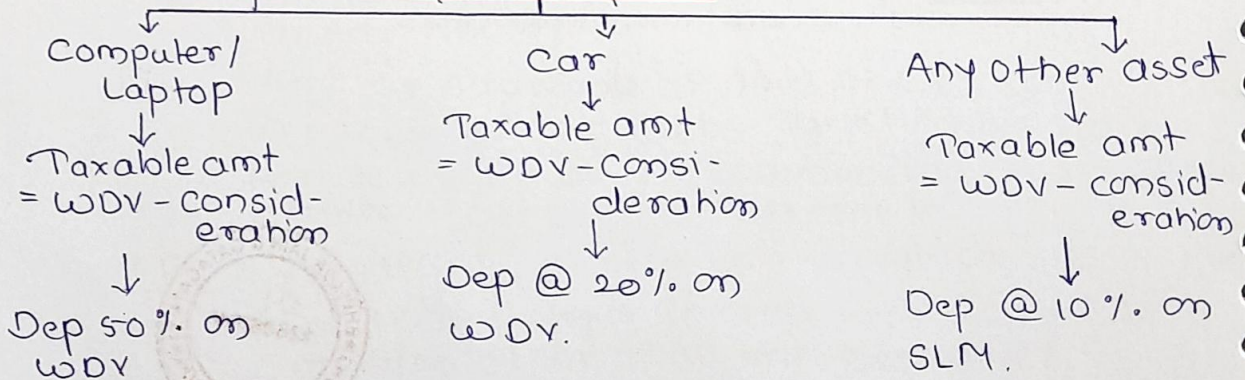 Computer/
Laptop
Taxable amt
= WDV - consid-
eration
Dep 50% on
WDV
Car
Taxable amt
= WDV - Consi-
deration
Dep @ 20% on
WDV.
Any other asset
Taxable amt
= WDV - consid-
eration
Dep @ 10% on
SLM.